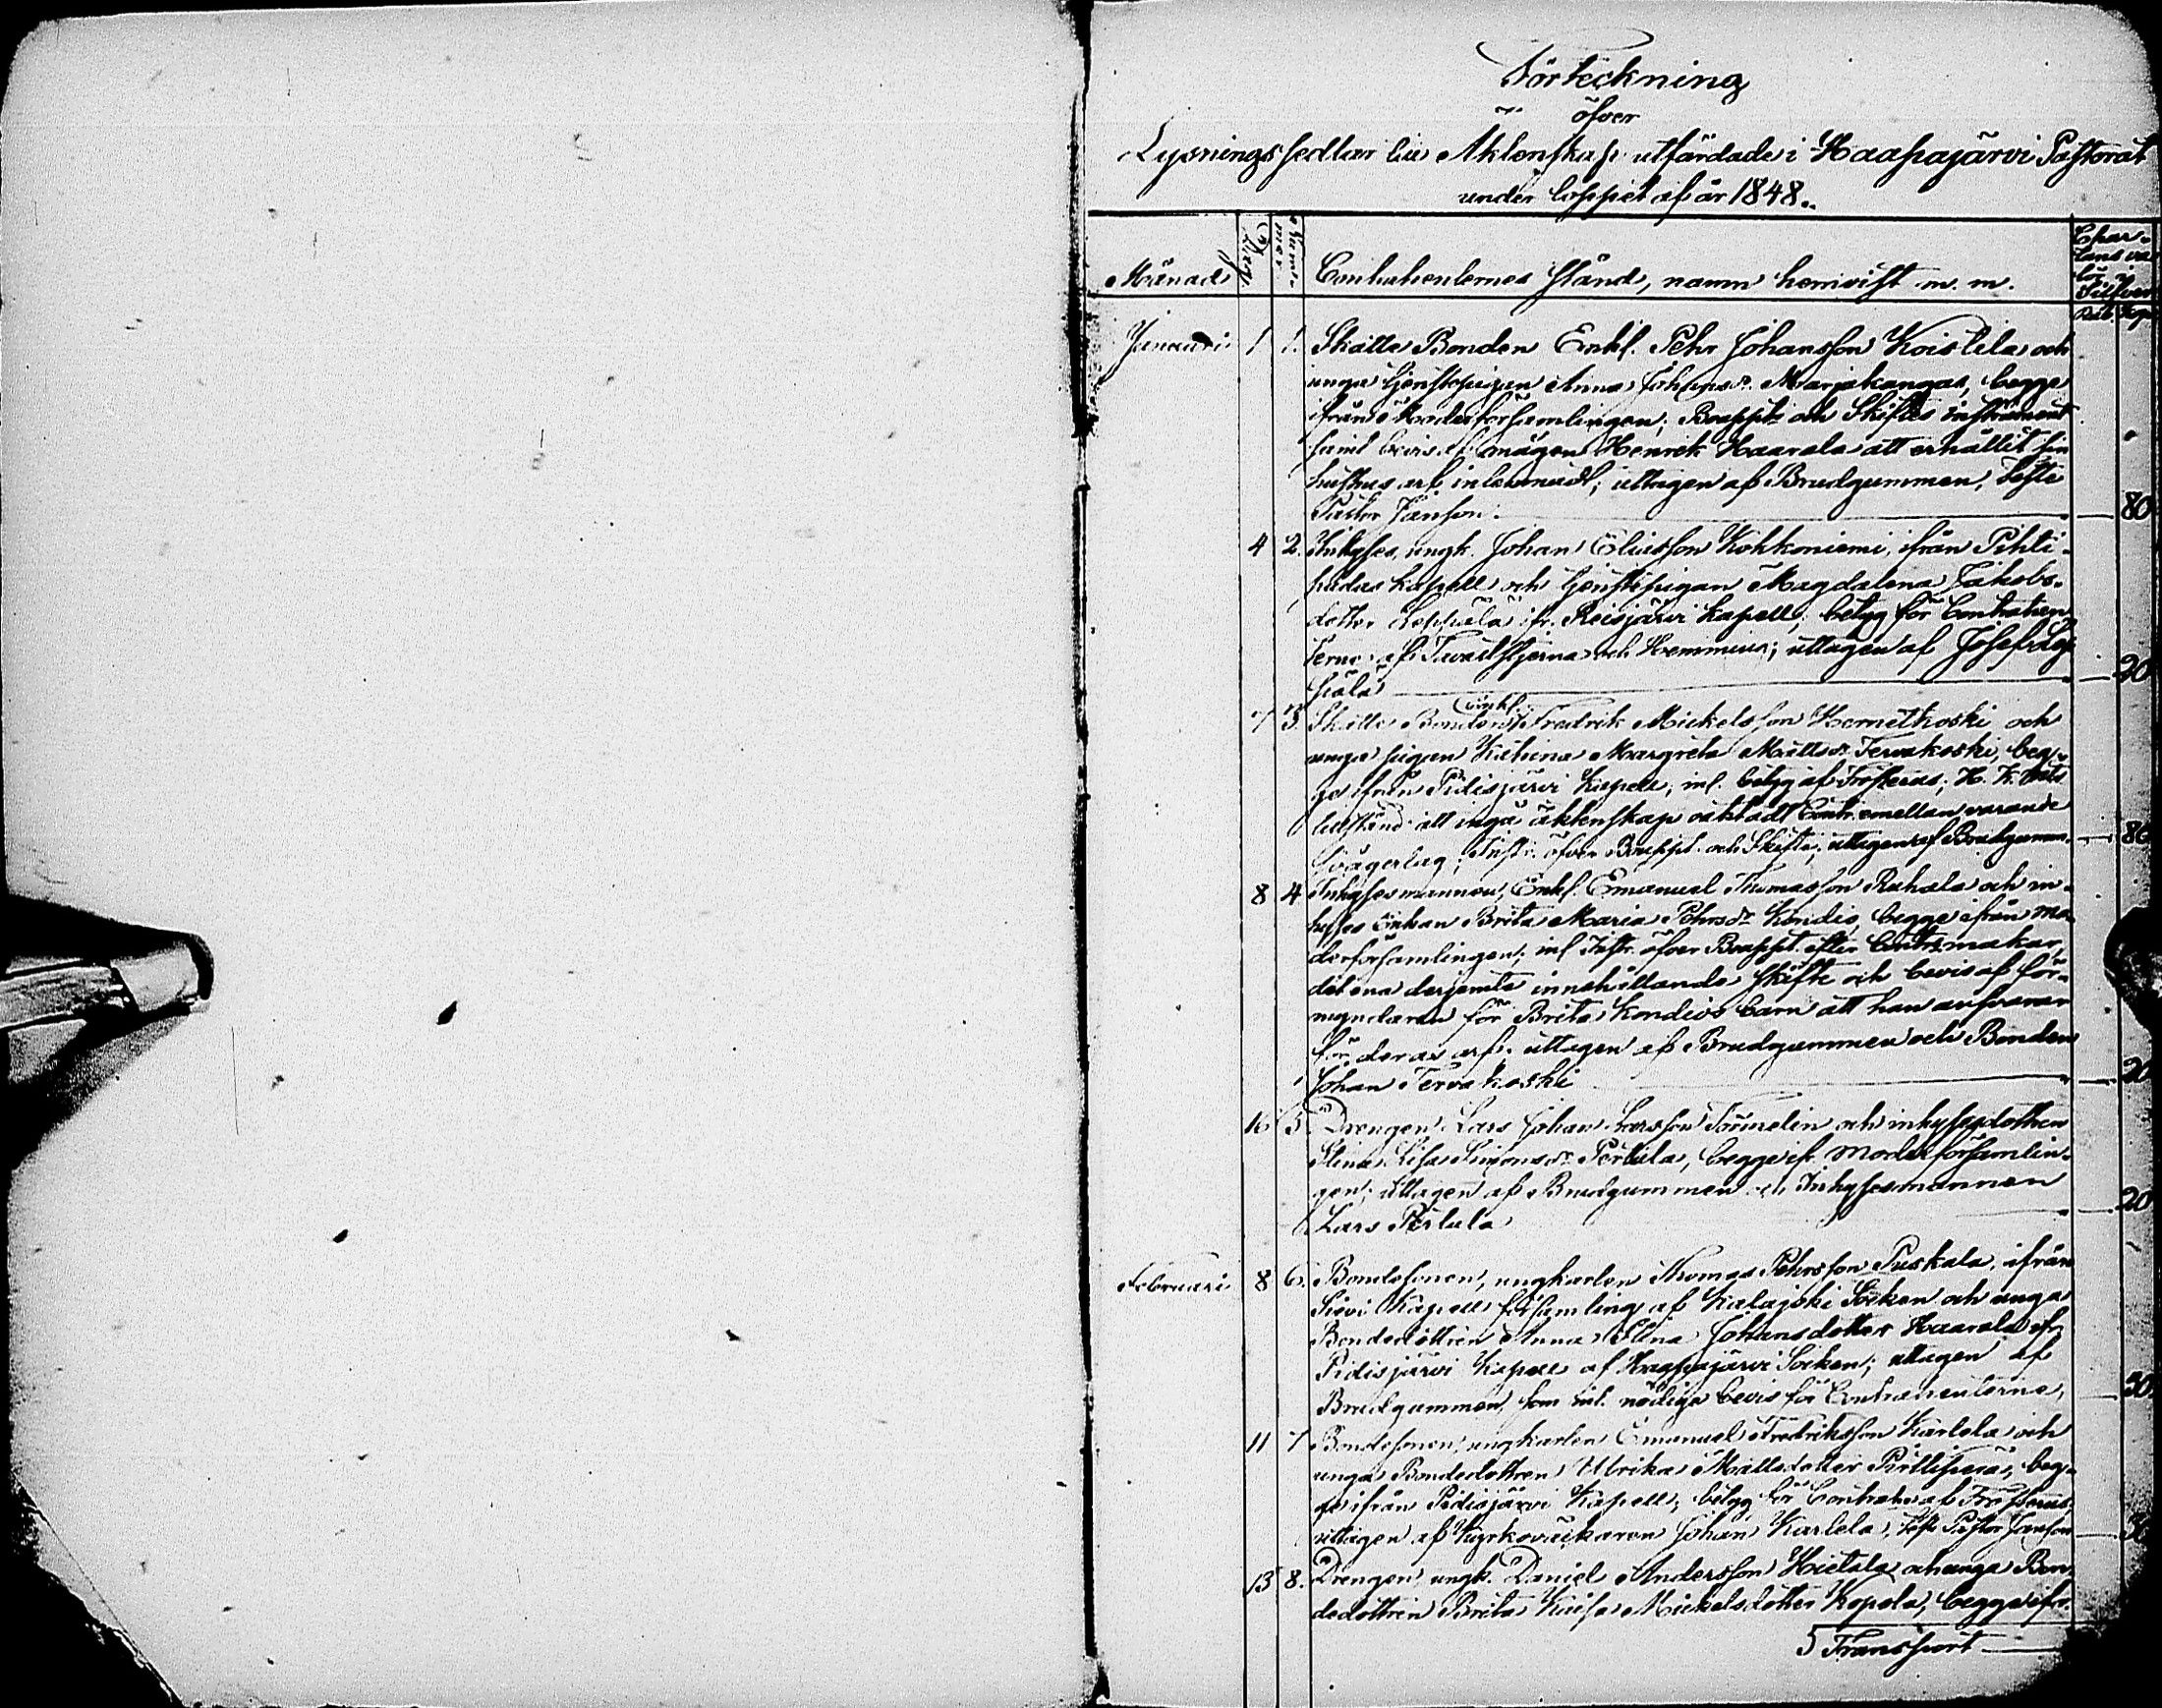 Förteckning
öfver
Lysningssedlar till Äktenskap utfärdade i Haapajärvi Pastorat
under loppet af år 1848.
Månad
Dag.
Num-
mer.
Contrahenternes stånd, namn hemvist m. m.
Char-
tans va-
lör i
Silfver
Rub. Kop.
Januari 1 1. Skatte Bonden Enkl. Pehr Johansson Koistila och
unga tjenstepigan Anna Johansdr Marjakangas, begge
ifrån Moderförsamlingen; Bouppt. och Skiftes instrument
samt bevis af mågen Henrik Haarala att erhållit sin
hustrus arf inlemnadt; uttagen af Brudgummen, teste
Pastor Janson. 80
4 2. Inhyses, ungk. Johan Eliasson Kohkoniemi, ifrån Pihti-
pudas Kapell och tjenstepigan Magdalena Jakobs-
dotter Leppälä ifr. Reisjärvi Kapell; betyg för Contrahen-
terne af Tavaststjerna och Hemming; uttagen af Josef Lep-
pälä 20
7 3. Skatte Bonden Enkl. Fredrik Mickelsson Hernetkoski och
unga pigan Katrina Margreta Mattsdr Tervakoski, beg-
ge ifrån Pidisjärvi Kapell, inl. betyg af Frosterus; H. K.
tillstånd att ingå äktenskap oaktadt Contr. emellan varande
Svågerlag; Instr. öfver Bouppt. och Skifte; uttagen af Brudgumm. 80
8 4 Inhysesmannen, Enkl. Emanuel Thomasson Ruhala och in-
hyses Enkan Brita Maria Pehrsdr Kondio, begge ifrån mo-
derförsamlingen; inl. Instr. öfver Bouppt. efter Contr. makar,
det ena derjemte innehållande skifte och bevis af för-
myndaren för Brita Kondios barn att han ansvarar
för deras arf; uttagen af Brudgummen och Bonden
Johan Tervakoski 20
16 5. Drengen Lars Johan Larsson Törmelin och inhysesdottren
Stina Lisa Simonsdr Pertula, begge ifr. moderförsamlin-
gen; uttagen af Brudgummen och Inhysesmannen
Lars Pertula 20
Februari 8 6. Bondesonen, ungkarlen Thomas Pehrsson Puskala, ifrån
Sievi Kapell församling af Kalajoki Socken och unga
Bondedottren Anna Stina Johansdotter Haarala ifr.
Pidisjärvi Kapell af Haapajärvi Socken; uttagen af
Brudgummen, som inl. nödiga bevis för Contrahenterne,
11 7 Bondesonen, ungkarlen Emanuel Fredriksson Karlela och
unga Bondedottren Ulrika Mattsdotter Pirttiperä, beg-
ge ifrån Pidisjärvi Kapell; betyg för Contrahr af Frosterus
uttagen af Kyrkoväktaren Johan Karlela, teste Pastor Janson
13 8. Drengen, ungk. Daniel Andersson Hietala och unga Bon-
dedottren Brita Kaisa Mickelsdotter Kopola, begge ifr.
Transport